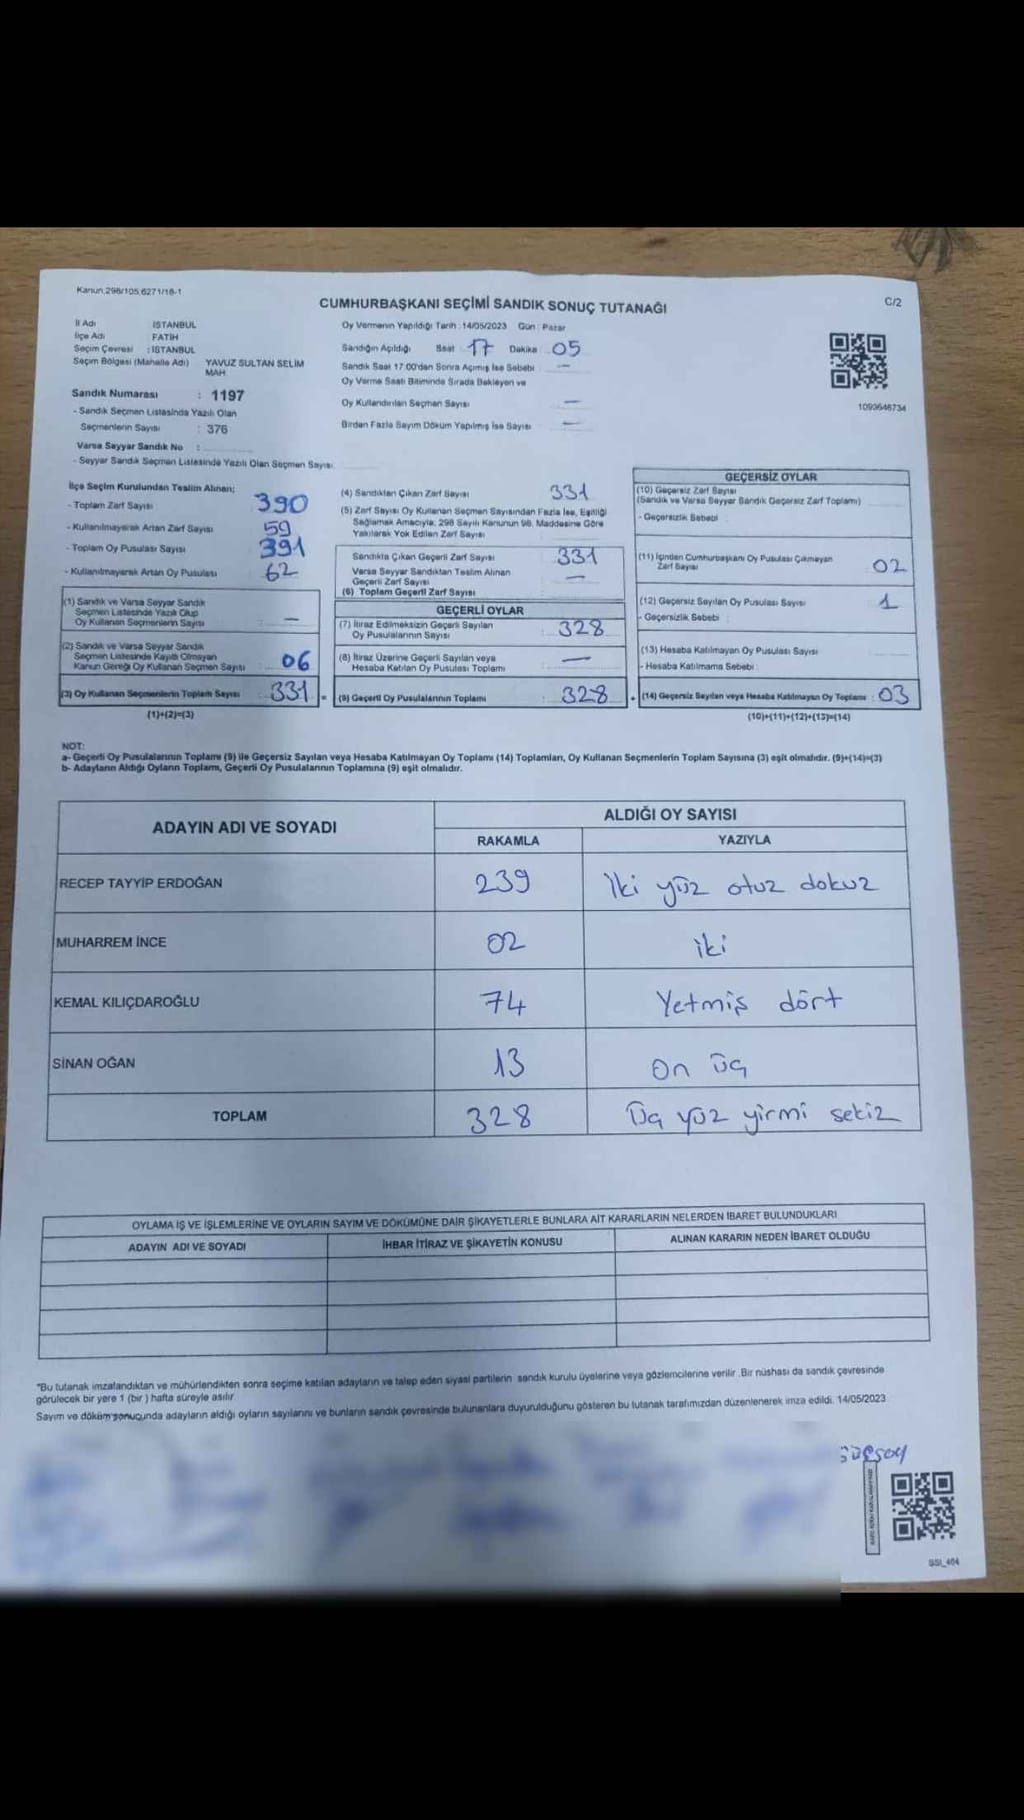 Kanun.298/105.6271/18-1
C/2
CUMHURBAŞKANI SEÇİMİ SANDIK SONUÇ TUTANAĞI
İl Adı İSTANBUL
İlçe Adı FATİH
Seçim Çevresi : İSTANBUL
Seçim Bölgesi (Mahalle Adı) YAVUZ SULTAN SELİM MAH.
Sandık Numarası : 1197
- Sandık Seçmen Listesinde Yazılı Olan
Seçmenlerin Sayısı : 376
Varsa Seyyar Sandık No :
- Seyyar Sandık Seçmen Listesinde Yazılı Olan Seçmen Sayısı
Oy Vermenin Yapıldığı Tarih : 14/05/2023 Gün : Pazar
Sandığın Açıldığı Saat : 17 Dakika : 05
Sandık Saat 17.00'dan Sonra Açımış İse Sebebi : —
Oy Verme Saati Bitiminde Sırada Bekleyen ve
Oy Kullandırılan Seçmen Sayısı —
Birden Fazla Sayım Döküm Yapılmış İse Sayısı —
1093646734
İlçe Seçim Kurulundan Teslim Alınan;
- Toplam Zarf Sayısı 390
- Kullanılmayarak Artan Zarf Sayısı 59
- Toplam Oy Pusulası Sayısı 391
- Kullanılmayarak Artan Oy Pusulası 62
(1) Sandık ve Varsa Seyyar Sandık
Seçmen Listesinde Yazılı Olup
Oy Kullanan Seçmenlerin Sayısı —
(2) Sandık ve Varsa Seyyar Sandık
Seçmen Listesinde Kayıtlı Olmayan
Kanun Gereği Oy Kullanan Seçmen Sayısı 06
(3) Oy Kullanan Seçmenlerin Toplam Sayısı : 331 =
(1)+(2)=(3)
(4) Sandıktan Çıkan Zarf Sayısı 331
(5) Zarf Sayısı Oy Kullanan Seçmen Sayısından Fazla İse, Eşitliği
Sağlamak Amacıyla, 298 Sayılı Kanunun 98. Maddesine Göre
Yakılarak Yok Edilen Zarf Sayısı
Sandıkta Çıkan Geçerli Zarf Sayısı 331
Varsa Seyyar Sandıktan Teslim Alınan
Geçerli Zarf Sayısı —
(6) Toplam Geçerli Zarf Sayısı
GEÇERLİ OYLAR
(7) İtiraz Edilmeksizin Geçerli Sayılan
Oy Pusulalarının Sayısı : 328
(8) İtiraz Üzerine Geçerli Sayılan veya
Hesaba Katılan Oy Pusulası Toplamı : —
(9) Geçerli Oy Pusulalarının Toplamı : 328 +
GEÇERSİZ OYLAR
(10) Geçersiz Zarf Sayısı
(Sandık ve Varsa Seyyar Sandık Geçersiz Zarf Toplamı)
- Geçersizlik Sebebi
(11) İçinden Cumhurbaşkanı Oy Pusulası Çıkmayan
Zarf Sayısı 02
(12) Geçersiz Sayılan Oy Pusulası Sayısı 1
- Geçersizlik Sebebi :
(13) Hesaba Katılmayan Oy Pusulası Sayısı
- Hesaba Katılmama Sebebi :
(14) Geçersiz Sayılan veya Hesaba Katılmayan Oy Toplamı : 03
(10)+(11)+(12)+(13)=(14)
NOT:
a- Geçerli Oy Pusulalarının Toplamı (9) ile Geçersiz Sayılan veya Hesaba Katılmayan Oy Toplamı (14) Toplamları, Oy Kullanan Seçmenlerin Toplam Sayısına (3) eşit olmalıdır. (9)+(14)=(3)
b- Adayların Aldığı Oyların Toplamı, Geçerli Oy Pusulalarının Toplamına (9) eşit olmalıdır.
ADAYIN ADI VE SOYADI
ALDIĞI OY SAYISI
RAKAMLA YAZIYLA
RECEP TAYYİP ERDOĞAN 239 İki yüz otuz dokuz
MUHARREM İNCE 02 iki
KEMAL KILIÇDAROĞLU 74 Yetmiş dört
SİNAN OĞAN 13 On üç
TOPLAM 328 Üç yüz yirmi sekiz
OYLAMA İŞ VE İŞLEMLERİNE VE OYLARIN SAYIM VE DÖKÜMÜNE DAİR ŞİKAYETLERLE BUNLARA AİT KARARLARIN NELERDEN İBARET BULUNDUKLARI
ADAYIN ADI VE SOYADI İHBAR İTİRAZ VE ŞİKAYETİN KONUSU ALINAN KARARIN NEDEN İBARET OLDUĞU
*Bu tutanak imzalandıktan ve mühürlendikten sonra seçime katılan adayların ve talep eden siyasi partilerin sandık kurulu üyelerine veya gözlemcilerine verilir .Bir nüshası da sandık çevresinde
görülecek bir yere 1 (bir ) hafta süreyle asılır.
Sayım ve döküm sonucunda adayların aldığı oyların sayılarını ve bunların sandık çevresinde bulunanlara duyurulduğunu gösteren bu tutanak tarafımızdan düzenlenerek imza edildi. 14/05/2023